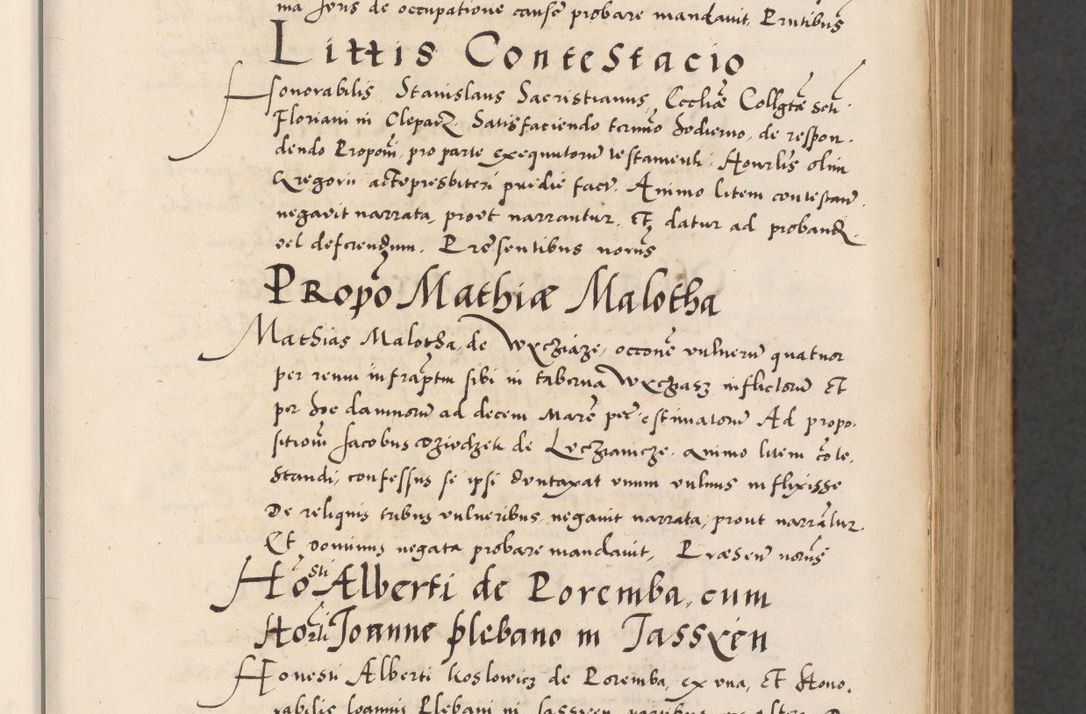 ma Juris de occupatione causæ probare mandavit. Prntibus
Littis Contestacio
Honorabilis Stanislaus Sacristianus, Eccliæ Collgtæ Scti
Floriani in Cleparz. Satisfaciendo termino hodierno, de respon-
dendo Propoñi, pro parte exequutorum testamenti, Honrlis olim
Gregorii actepresbiteri pridie fact. Animo litem contestandi
negavit narrata, prout narrantur, Et datur ad proband
vel deferendum. Præsentibus notis
Propo Mathiæ Malotha
Mathias Malotha, de Wxcziaze, occone vulnerum quatuor
per reum infraptm sibi in taberna Wxcziasz inflictorum Et
per hoc damnorum ad decem Marc per estimatorum Ad propo-
sitionem Jacobus Dziedzek de Leczianicze, animo litem cote-
standi, confessus se ipsi duntaxat unum vulnus inflixisse
De reliquis tribus vulneribus, negavit narrata, prout narrantur.
Et dominus negata probare mandavit, Præsen notis
Hosti Alberti de Poremba, cum
Horli Joanne plebano in Jassxen
Honesti Alberti Koslowicz de Poremba, ex una, Et Hono-
rabilis Joanni Plebani in Jassxen partibus ex altera